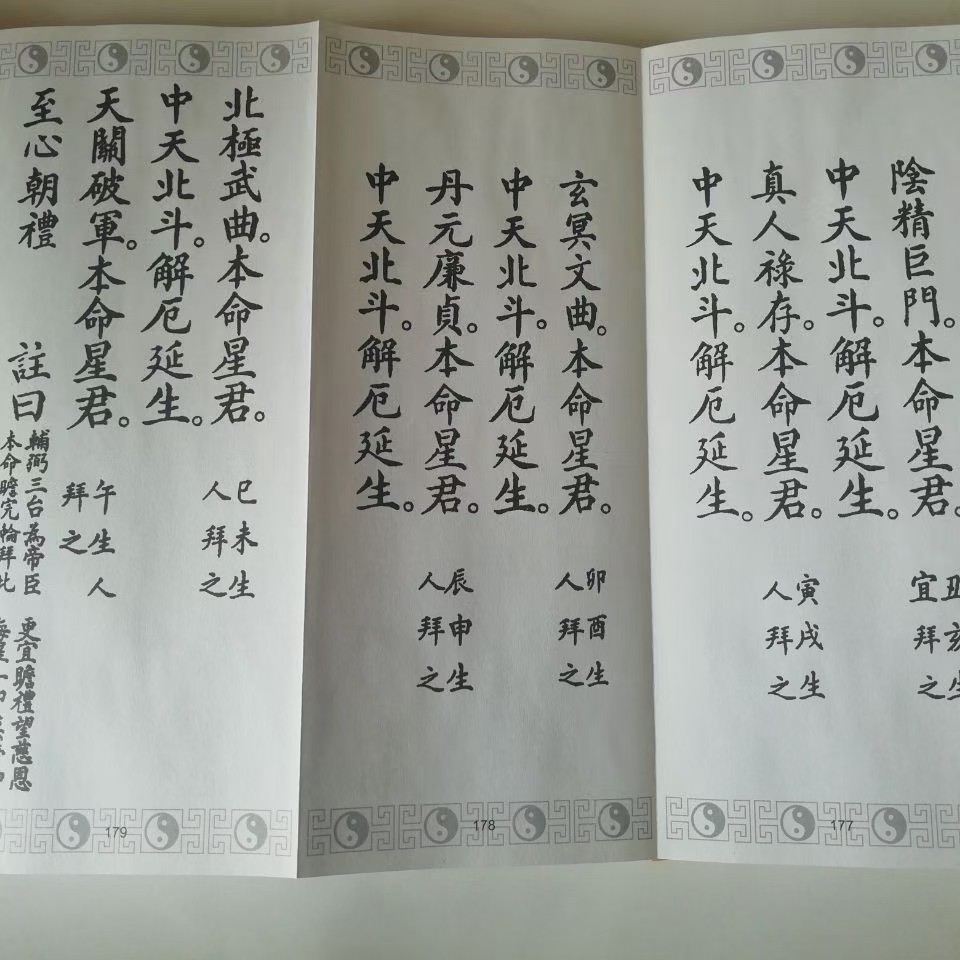 陰精巨門。本命星君。
丑亥生
宜拜之
中天北斗。解厄延生。
真人祿存。本命星君。
寅戌生
人拜之
中天北斗。解厄延生。
177
玄冥文曲。本命星君。
卯酉生
人拜之
中天北斗。解厄延生。
丹元廉貞。本命星君。
辰申生
人拜之
中天北斗。解厄延生。
178
北極武曲。本命星君。
巳未生
人拜之
中天北斗。解厄延生。
天關破軍。本命星君。
午生人
拜之
至心朝禮 註曰
輔弼三台為帝臣 更宜瞻禮望慈恩
本命瞻完
179